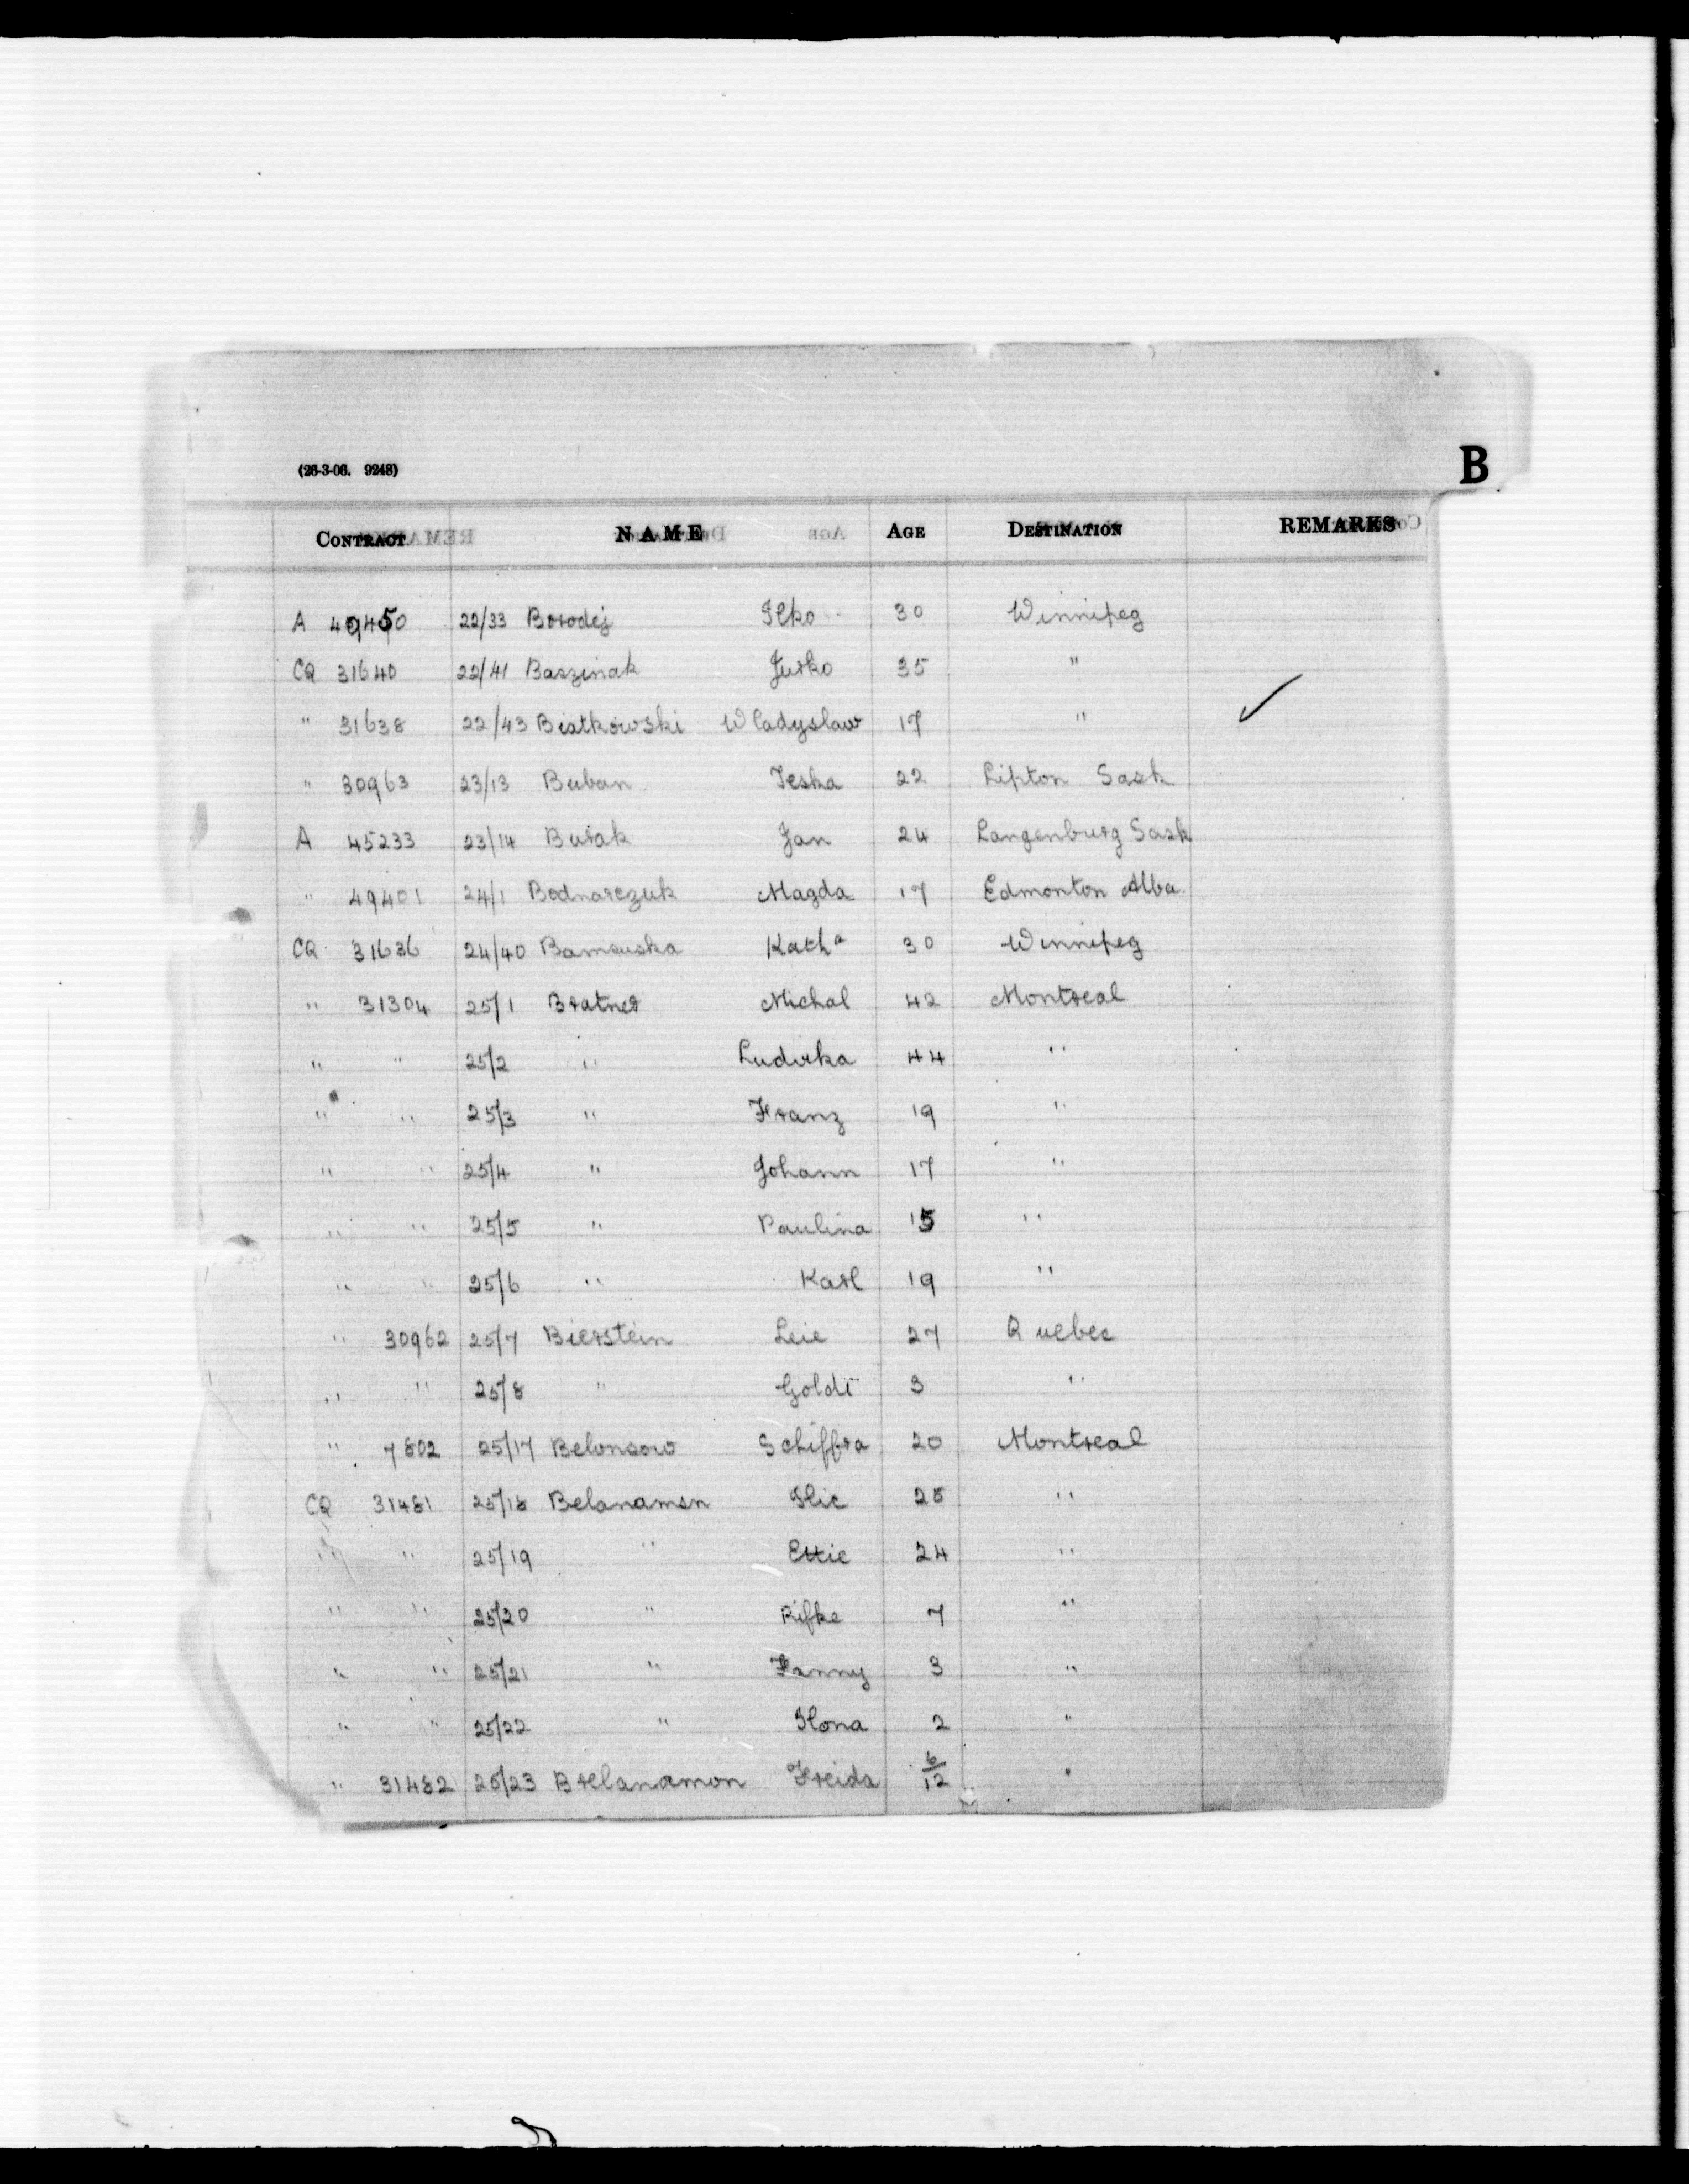 (26-3-06. 9248)
B
CONTRACT NAME AGE DESTINATION REMARKS
A 49450 22/33 Borodej Ilko 30 Winnipeg
CQ 31640 22/41 Baszinak Jurko 35 "
" 31638 22/43 Biatkowski Wladyslaw 17 " ✓
" 30963 23/13 Buban Teska 22 Lipton Sask
A 45233 23/14 Burak Jan 24 Langenburg Sask
" 49401 24/1 Bodnarczuk Magda 17 Edmonton Alba
CQ 31636 24/40 Kath a 30 Winnipeg
" 31304 25/1 Bratner Michal 42 Montreal
" " 25/2 " Ludvika 44 "
" " 25/3 " Franz 19 "
" " 25/4 " Johann 17 "
" " 25/5 " Paulina 15 "
" " 25/6 " Karl 19 "
" 30962 25/7 Bierstein Leie 27 Quebec
" " 25/8 " Goldi 3 "
" 7802 25/17 Belonsow Schiffra 20 Montreal
CQ 31481 25/18 Belanamsn Ilic 25 "
" " 25/19 " Ettie 24 "
" " 25/20 " Rifke 7 "
" " 25/21 " Fanny 3 "
" " 25/22 " Ilona 2 "
" 31482 25/23 Brelanamon Freida 6/12 "